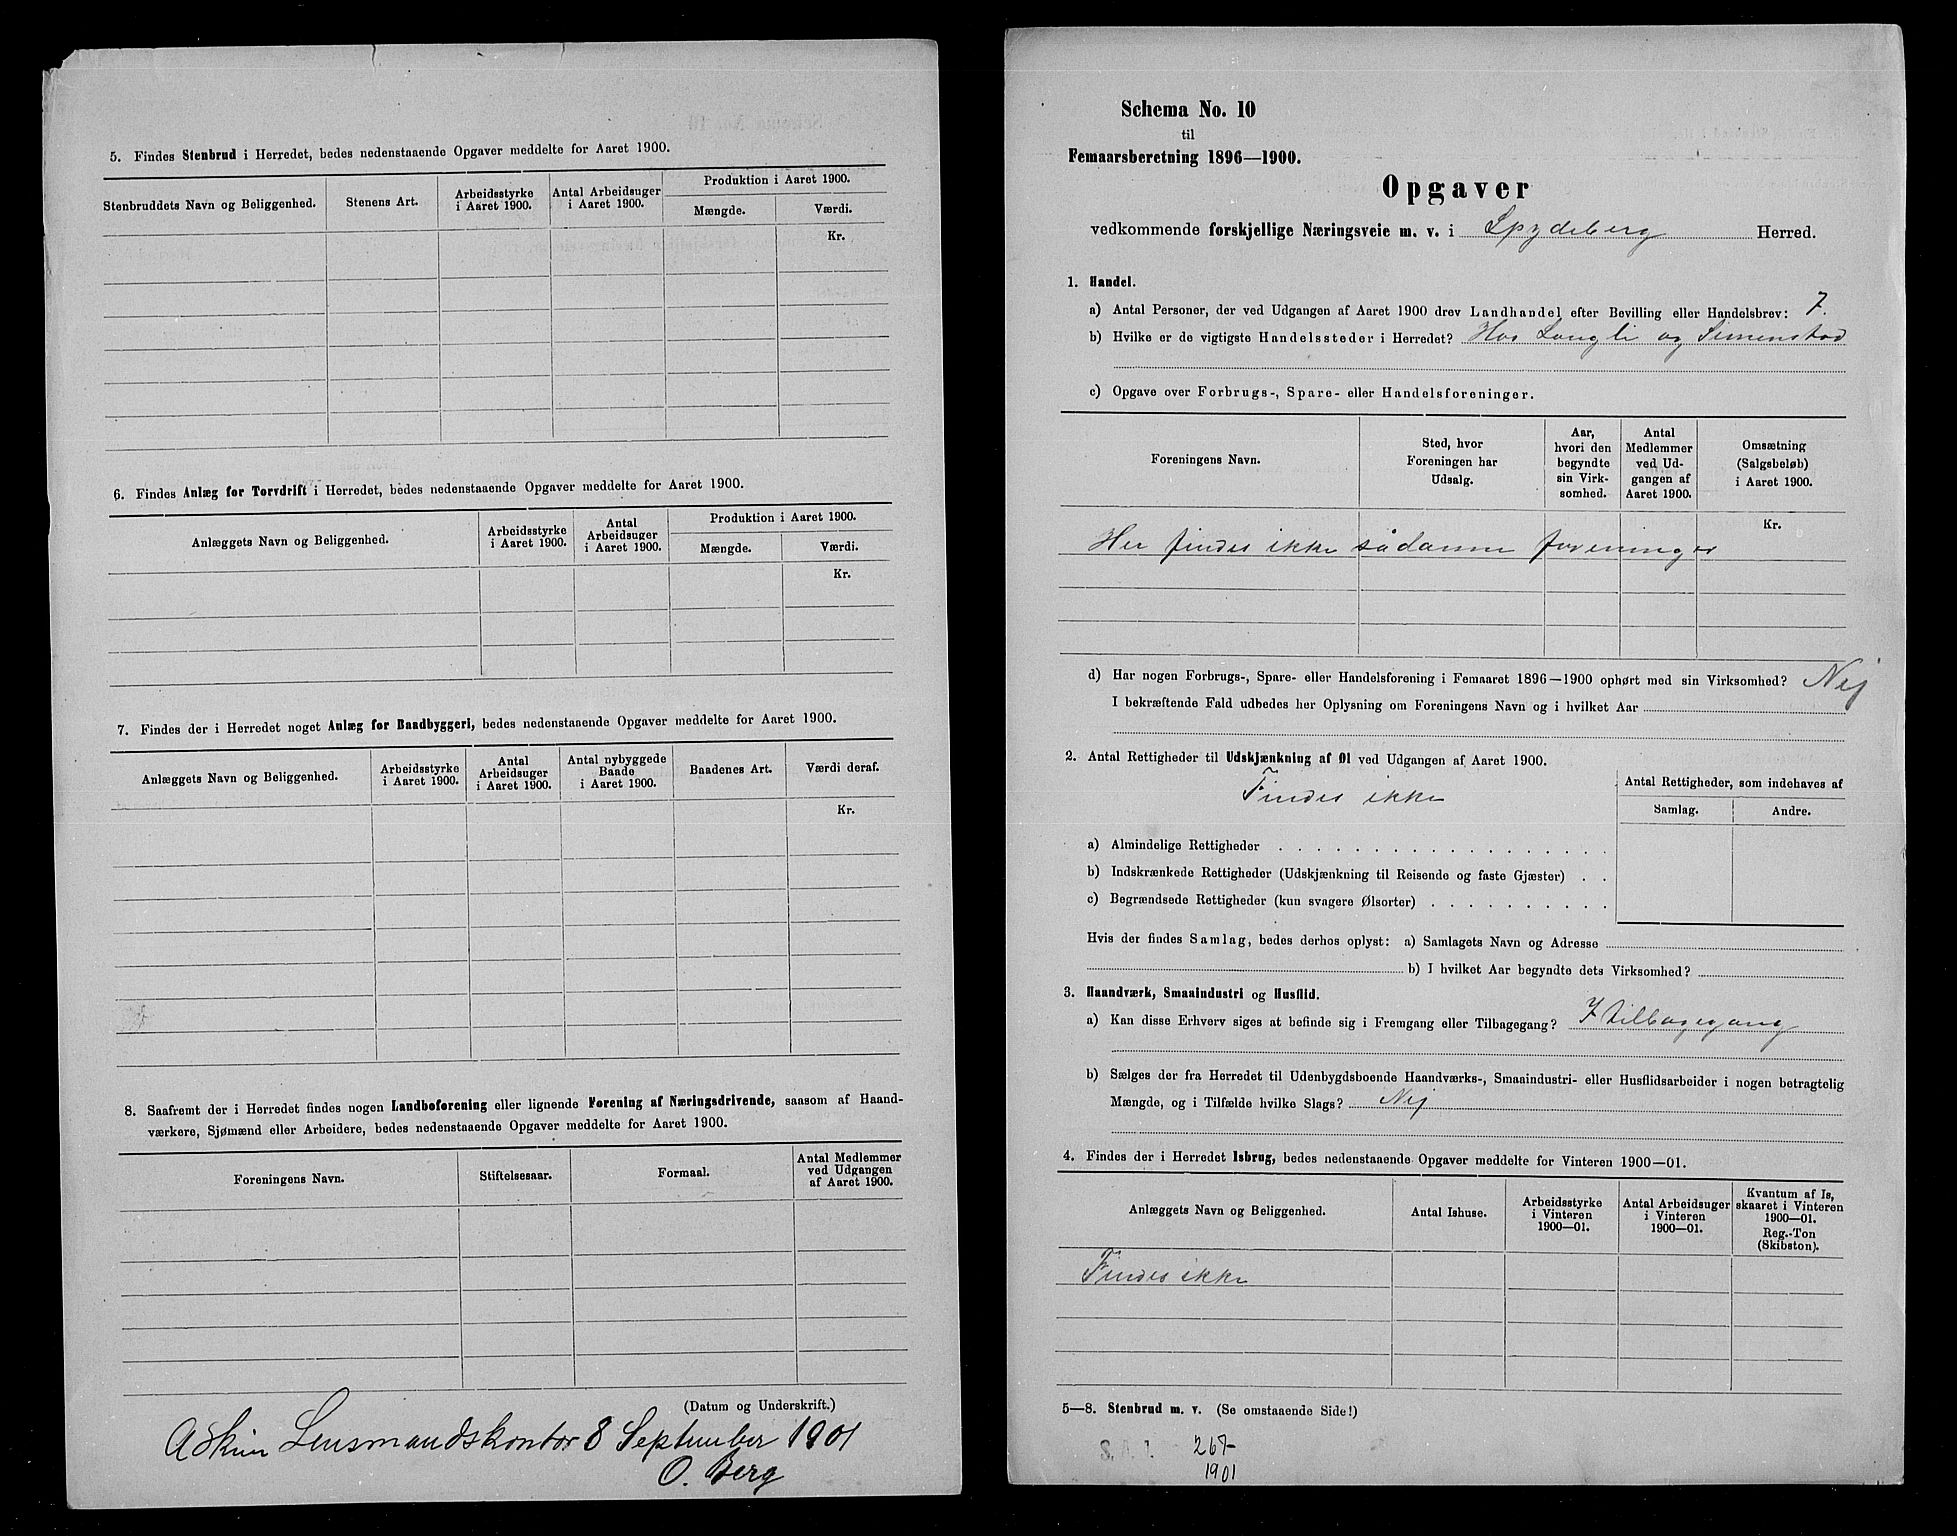 5. Findes Stenbrud i Herredet, bedes nedenstaaende Opgaver meddelte for Aaret 1900.
Stenbruddets Navn og Beliggenhed.
Stenens Art.
Arbeidsstyrke
i Aaret 1900.
Antal Arbeidsuger
i Aaret 1900.
Produktion i Aaret 1900.
Mængde.
Værdi.
Kr.
6. Findes Anlæg for Torvdrift i Herredet, bedes nedenstaaende Opgaver meddelte for Aaret 1900.
Anlæggets Navn og Beliggenhed.
Arbeidsstyrke
i Aaret 1900.
Antal
Arbeidsuger
i Aaret 1900.
Produktion i Aaret 1900.
Mængde.
Værdi.
Kr.
7. Findes der i Herredet noget Anlæg for Baadbyggeri, bedes nedenstaaende Opgaver meddelte for Aaret 1900.
Anlæggets Navn og Beliggenhed.
Arbeidsstyrke
i Aaret 1900.
Antal
Arbeidsuger
i Aaret 1900.
Antal nybyggede
Baade
i Aaret 1900.
Baadenes Art.
Værdi deraf.
Kr.
8. Saafremt der i Herredet findes nogen Landboforening eller lignende Forening af Næringsdrivende, saasom af Haand-
værkere, Sjømænd eller Arbeidere, bedes nedenstaaende Opgaver meddelte for Aaret 1900.
Foreningens Navn.
Stiftelsesaar.
Formaal.
Antal Medlemmer
ved Udgangen
af Aaret 1900.
(Datum og Underskrift.)
Askim Lensmandskontor 8 September 1901
O. Berg
Schema No. 10
til
Femaarsberetning 1896—1900.
Opgaver
vedkommende forskjellige Næringsveie m. v. i Spydeberg Herred.
1. Handel.
a) Antal Personer, der ved Udgangen af Aaret 1900 drev Landhandel efter Bevilling eller Handelsbrev: 7.
b) Hvilke er de vigtigste Handelssteder i Herredet? Hos Langli og Simenstad
c) Opgave over Forbrugs-, Spare- eller Handelsforeninger.
Foreningens Navn.
Sted, hvor
Foreningen har
Udsalg.
Aar,
hvori den
begyndte
sin Virk-
somhed.
Antal
Medlemmer
ved Ud-
gangen af
Aaret 1900.
Omsætning
(Salgsbeløb)
i Aaret 1900.
Kr.
Her findes ikke sådanne foreninger
d) Har nogen Forbrugs-, Spare- eller Handelsforening i Femaaret 1896—1900 ophørt med sin Virksomhed? Nej
I bekræftende Fald udbedes her Oplysning om Foreningens Navn og i hvilket Aar
2. Antal Rettigheder til Udskjænkning af Øl ved Udgangen af Aaret 1900.
Findes ikke
Antal Rettigheder, som indehaves af
Samlag.
Andre.
a) Almindelige Rettigheder
b) Indskrænkede Rettigheder (Udskjænkning til Reisende og faste Gjæster)
c) Begrændsede Rettigheder (kun svagere Ølsorter)
Hvis der findes Samlag, bedes derhos oplyst: a) Samlagets Navn og Adresse
b) I hvilket Aar begyndte dets Virksomhed?
3. Haandværk, Smaaindustri og Husflid.
a) Kan disse Erhverv siges at befinde sig i Fremgang eller Tilbagegang? I tilbagegang
b) Sælges der fra Herredet til Udenbygdsboende Haandværks-, Smaaindustri- eller Husflidsarbeider i nogen betragtelig
Mængde, og i Tilfælde hvilke Slags? Nej
4. Findes der i Herredet Isbrug, bedes nedenstaaende Opgaver meddelte for Vinteren 1900—01.
Anlæggets Navn og Beliggenhed.
Antal Ishuse.
Arbeidsstyrke
i Vinteren
1900—01.
Antal Arbeidsuger
i Vinteren
1900—01.
Kvantum af Is,
skaaret i Vinteren
1900—01.
Reg.-Ton
(Skibston).
Findes ikke
5—8. Stenbrud m. v. (Se omstaaende Side!)
267
1901